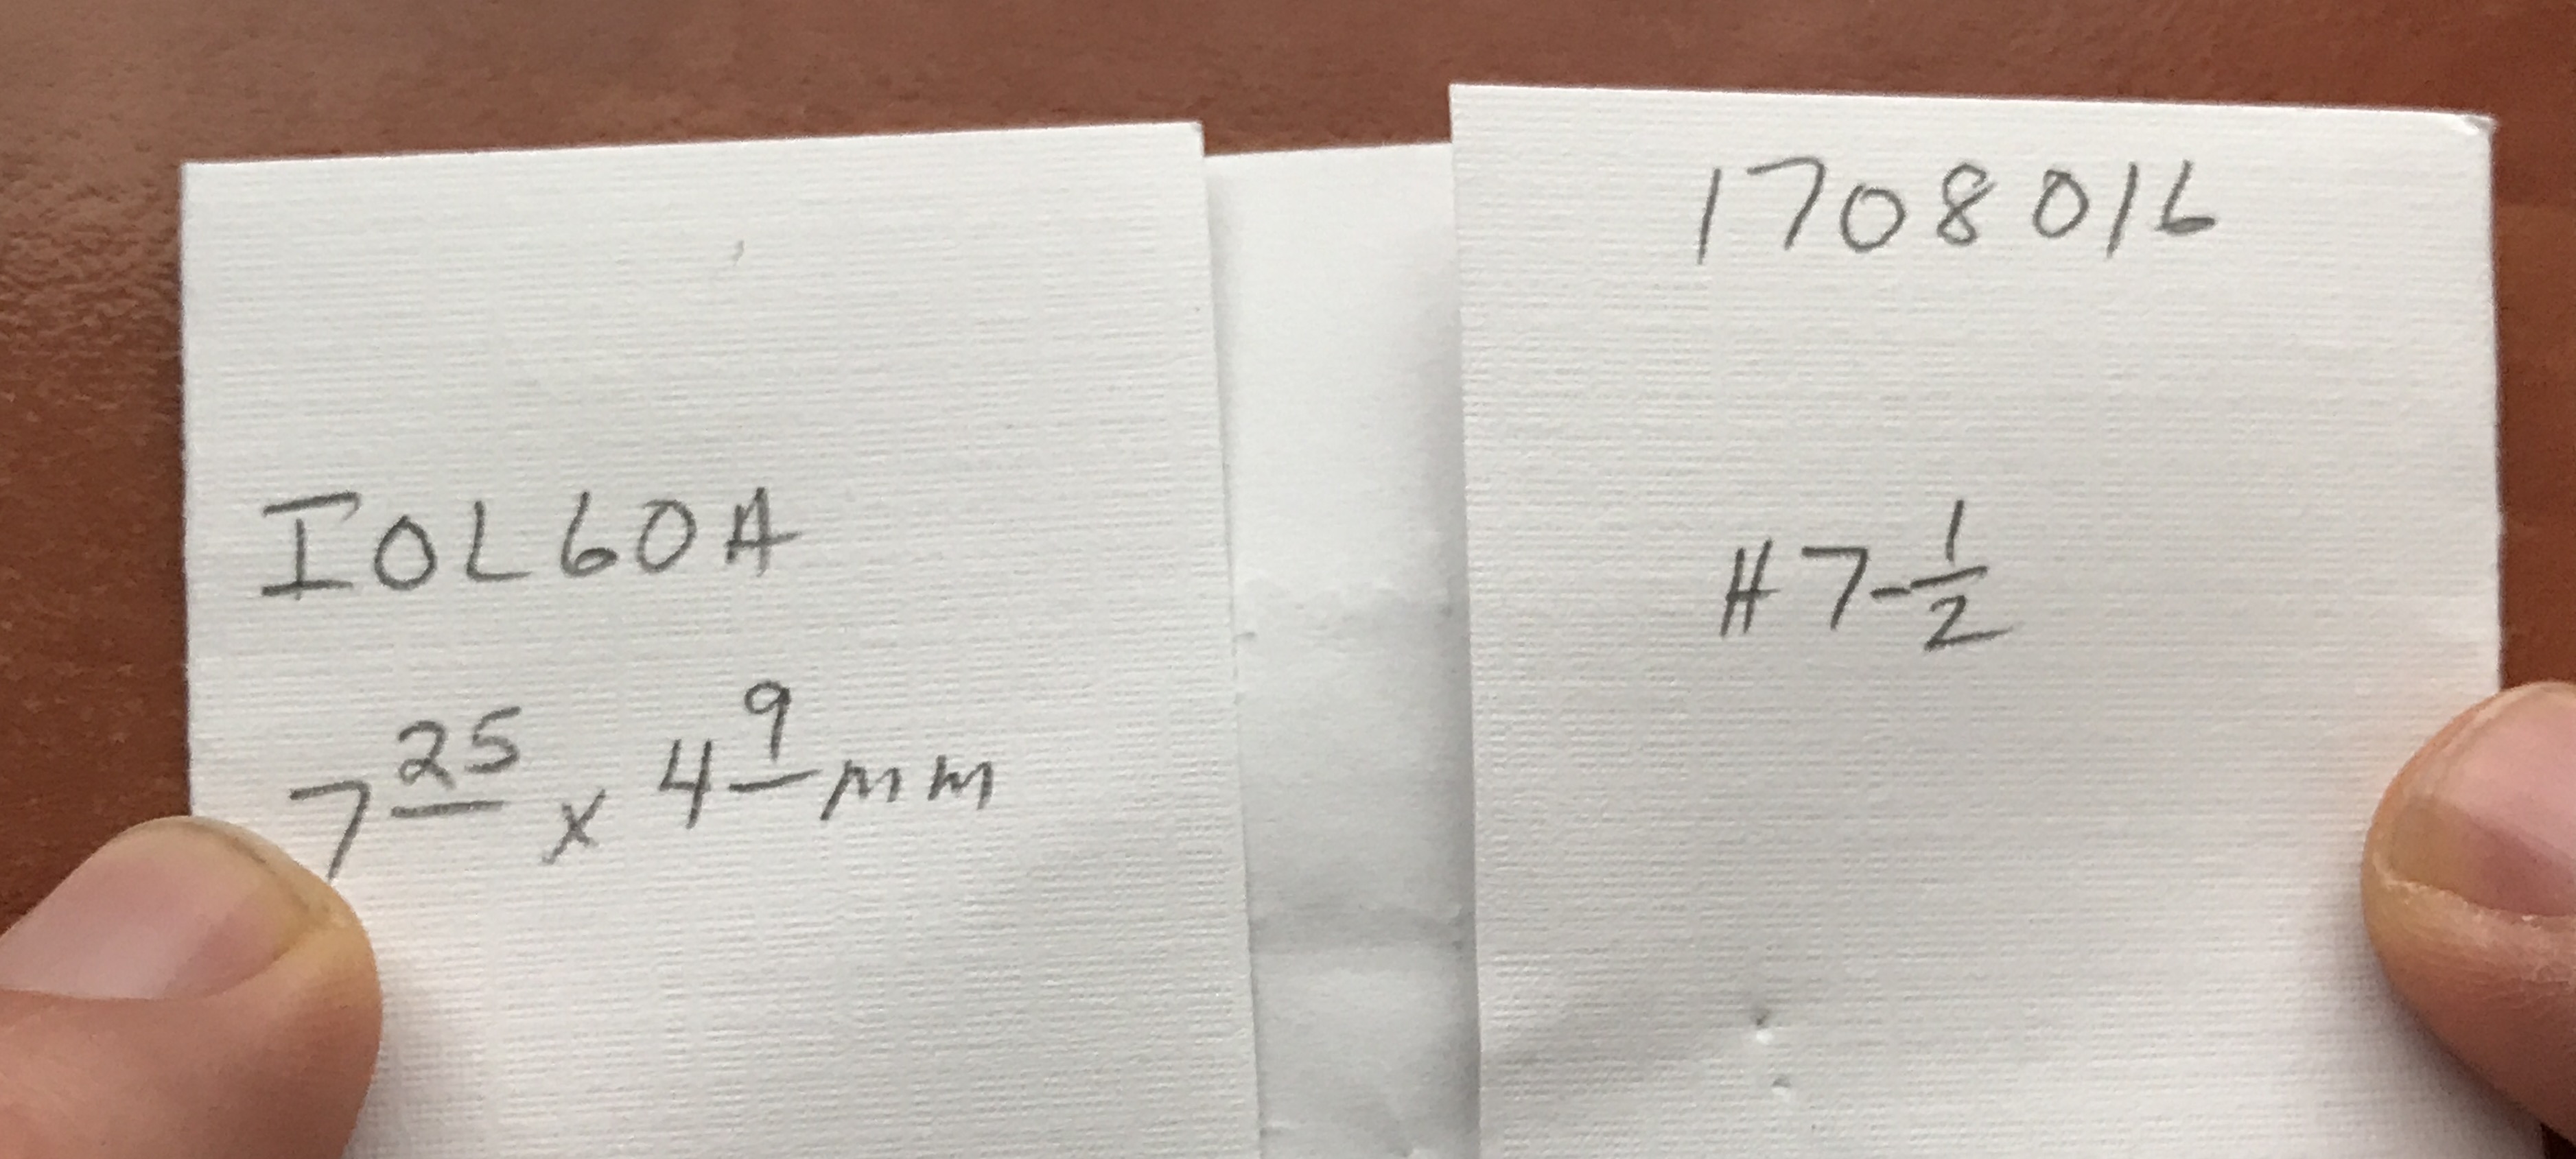 IOL60A
7 25 x 4 9 mm
1708016
#7-1/2